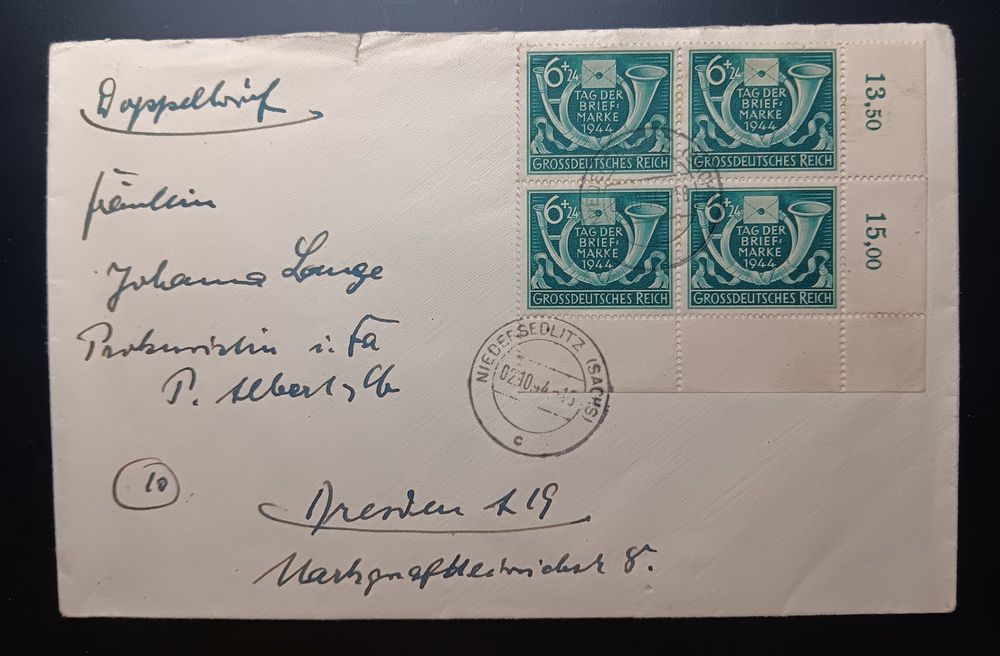 Doppelbrief
Fräulein
Johanna Lange
Prokuristin i. Fa
P. Albert & Co
10
Dresden A 19
Markgraf Heinrichstr 8.
6+24
TAG DER
BRIEF=
MARKE
1944
GROSSDEUTSCHES REICH
6+24
TAG DER
BRIEF=
MARKE
1944
GROSSDEUTSCHES REICH
13,50
6+24
TAG DER
BRIEF=
MARKE
1944
GROSSDEUTSCHES REICH
6+24
TAG DER
BRIEF=
MARKE
1944
GROSSDEUTSCHES REICH
15,00
NIEDERSEDLITZ (SACHS)
c